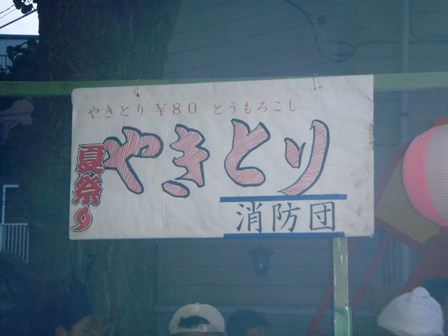 やきとり ¥80 とうもろこし
夏祭り
やきとり
消防団